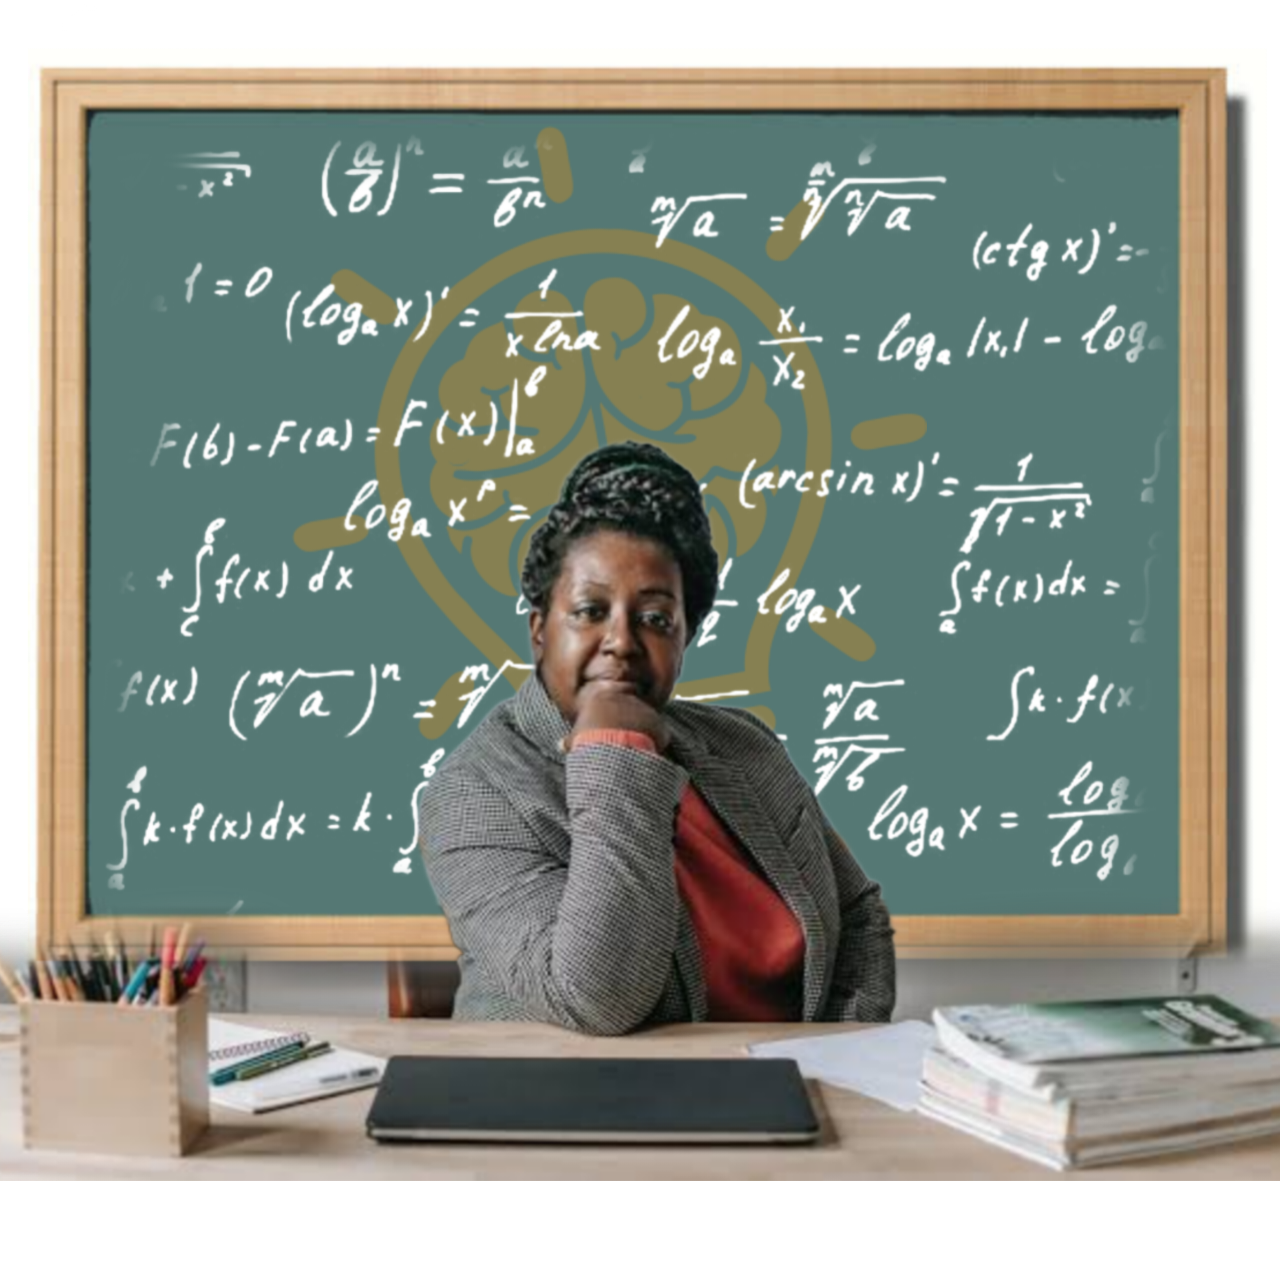 x²
(a/b)ⁿ = aⁿ/bⁿ
ᵐ√a = ᵐ√ⁿ√a
(ctg x)' = -
1 = 0
(logₐ x)' = 1/(x ln a)
logₐ x₁/x₂ = logₐ |x₁| - log
F(b) - F(a) = F(x)|ₐᵇ
logₐ xᵖ =
(arcsin x)' = 1/√(1 - x²)
+ ∫ f(x) dx
logₐ x
∫ f(x) dx =
f(x)
(ᵐ√a)ⁿ = ᵐ√
ᵐ√a/ᵐ√b
∫ k · f(x
∫ k · f(x) dx = k · ∫
logₐ x = log/log